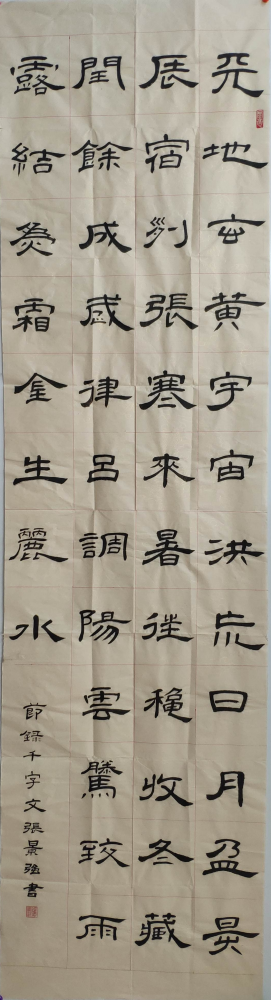 天地玄黄宇宙洪荒日月盈昃
辰宿列張寒來暑往秋收冬藏
閏餘成歲律呂調陽雲騰致雨
露結為霜金生麗水
節録千字文張景強書